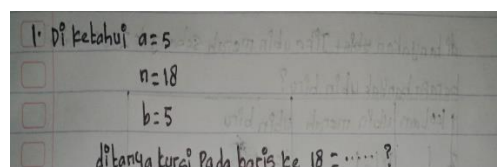 1. Diketahui a=5
n=18
b=5
ditanya kursi Pada baris ke 18 = ...... ?